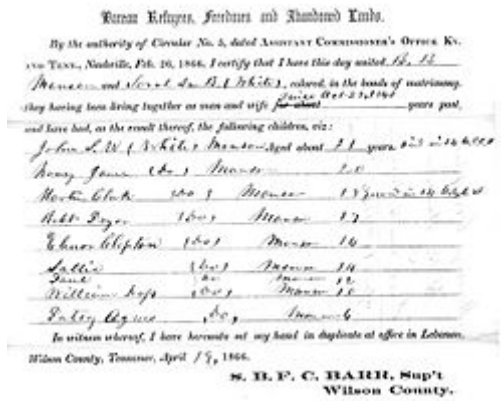 Bureau Refugees, Freedmen and Abandoned Lands.
By the authority of Circular No. 5, dated ASSISTANT COMMISSIONER'S OFFICE KY.
AND TENN., Nashville, Feb. 26, 1866, I certify that I have this day united
and (White), colored, in the bonds of matrimony,
since Oct
they having been living together as man and wife for about years past,
and have had, as the result thereof, the following children, viz:
John S. W (White) Manson Aged about 21 years
Jane (Do) Manson
Clark (Do) Manson
Robt (Do) Manson 17
Clifton (Do) Manson 16
Sallie (Do) Manson 14
Do Manson 12
William (Do) Manson 10
Do, Manson 6
In witness whereof, I have hereunto set my hand in duplicate at office in Lebanon,
Wilson County, Tennessee, April 19, 1866.
S. B. F. C. BARR, Sup't
Wilson County.